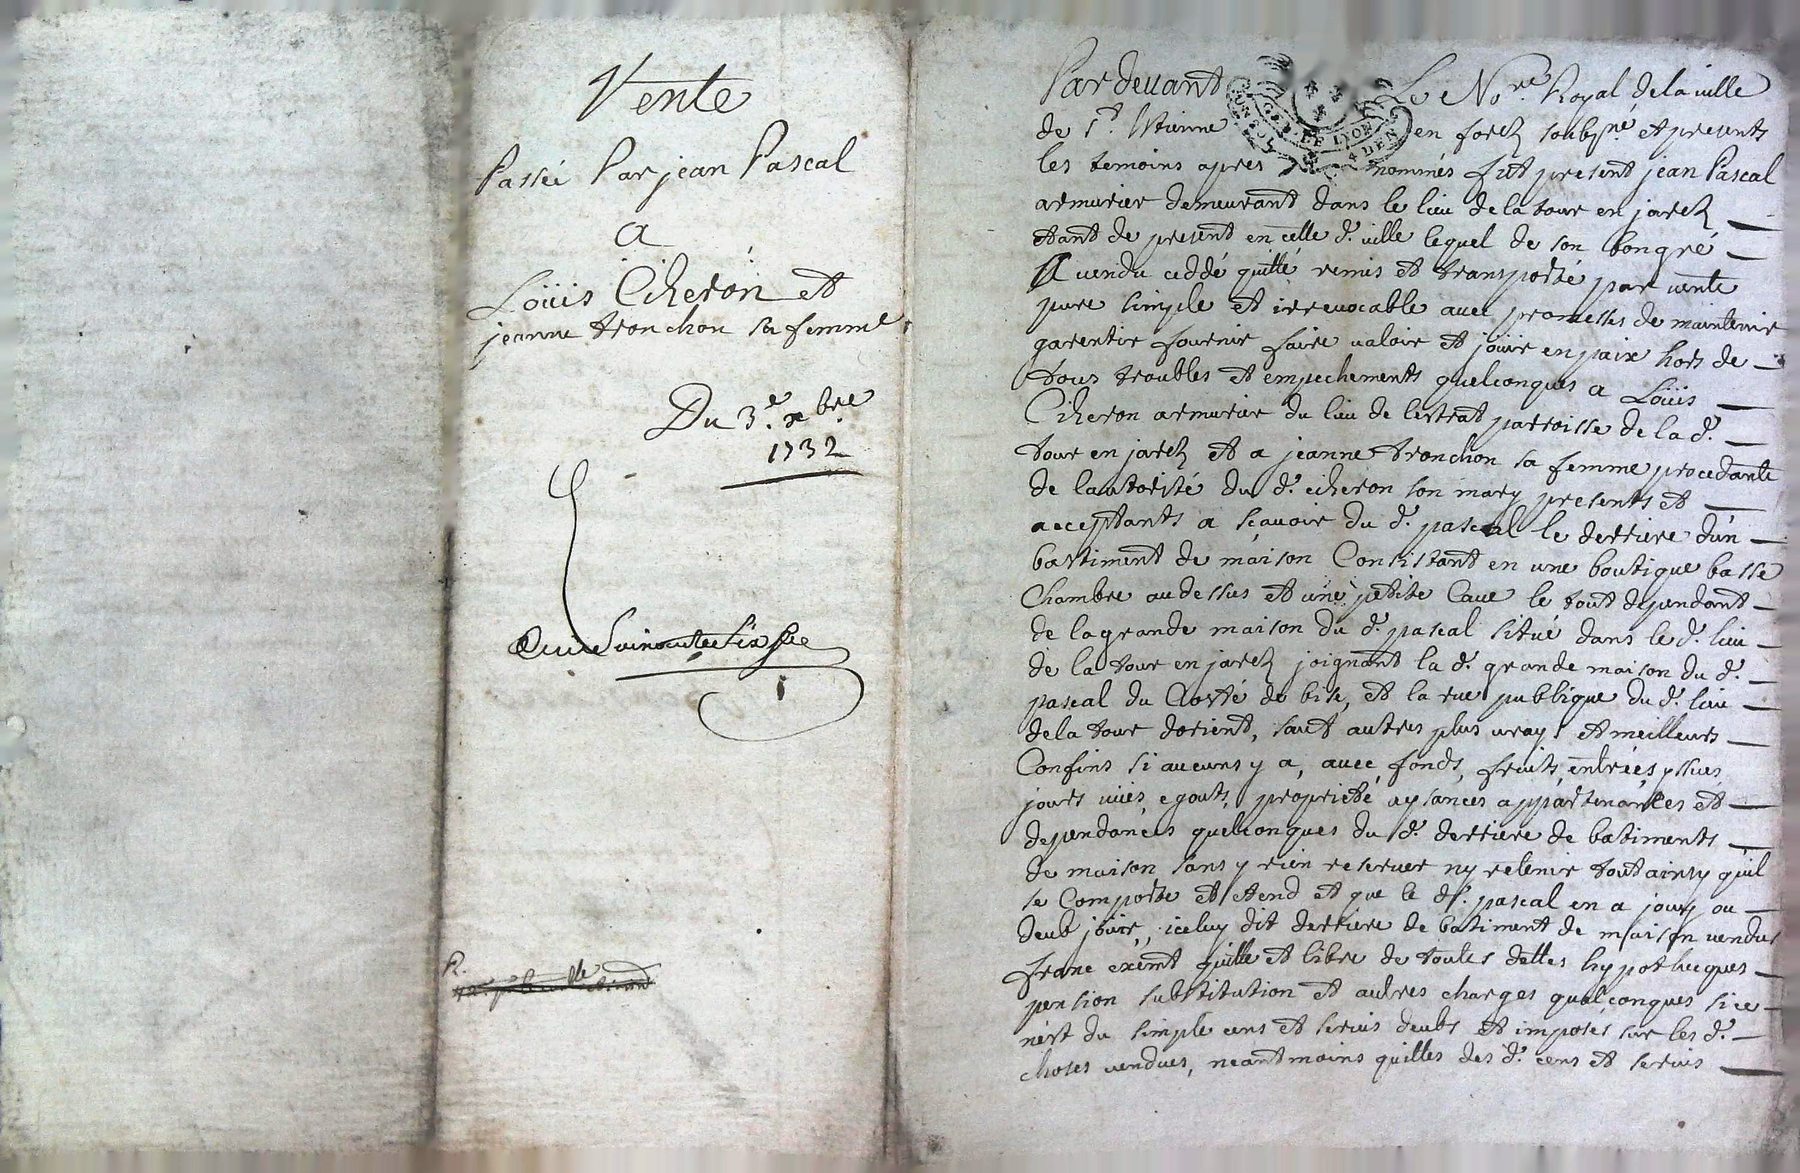 Vente
Passée Par jean Pascal
A
Loüis Ciheron et
jeanne tronchon sa femme
Du 3.e xbre
1732
R.
Pardeuant Le No.re Royal de la uille
de St. Etienne en forez soubz.né et presents
les temoins apres nommés fut present jean Pascal
armurier demeurant dans le lieu de la tour en jarez
etant de present en celle d. uille lequel de son bongré
A uendu ceddé quitté remis et transporté par uente
pure simple et irreuocable auec promesses de maintenir
garentir fournir faire ualoir et joüir en paix hors de
tous troubles et empechements quelconques a Loüis
Ciheron armurier du lieu de lestrat parroisse de la d.
tour en jarez et a jeanne tronchon sa femme procedante
de lautorité du d. ciheron son mary presents et
acceptants a sçauoir du d. pascal le derriere dun
bastiment de maison Consistant en une boutique basse
Chambre au dessus et une petite Caue le tout dependant
de la grande maison du d. pascal situé dans le d. lieu
de la tour en jarez joignant la d. grande maison du d.
pascal du Costé de bise, et la rue publique du d. lieu
de la tour dorient, sauf autres plus urays et meilleurs
Confins si aucuns y a, auec fonds, fruits, entrées yssues
jours uües, egouts, proprieté aysances appartenances et
dependances quelconques du d. derriere de batiments
de maison sans y rien reseruer ny retenir tout ainsy quil
se Comporte et etend et que le d. pascal en a jouy ou
deub joüir, iceluy dit derriere de batiment de maison uendus
franc exemt quitte et libre de toutes dettes hypothecques
pension substitution et autres charges quelconques si ce
nest du simple cens et seruis deubs et imposés sur les d.
choses uendues, neantmoins quittes des d. cens et seruis